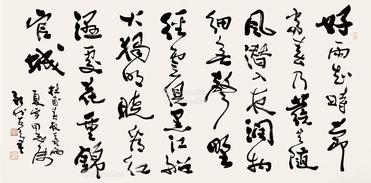 好雨知時節
當春乃發生隨
風潛入夜潤物
細無聲野
徑雲俱黑江船
火獨明曉看紅
濕處花重錦
官城
杜甫春夜喜雨